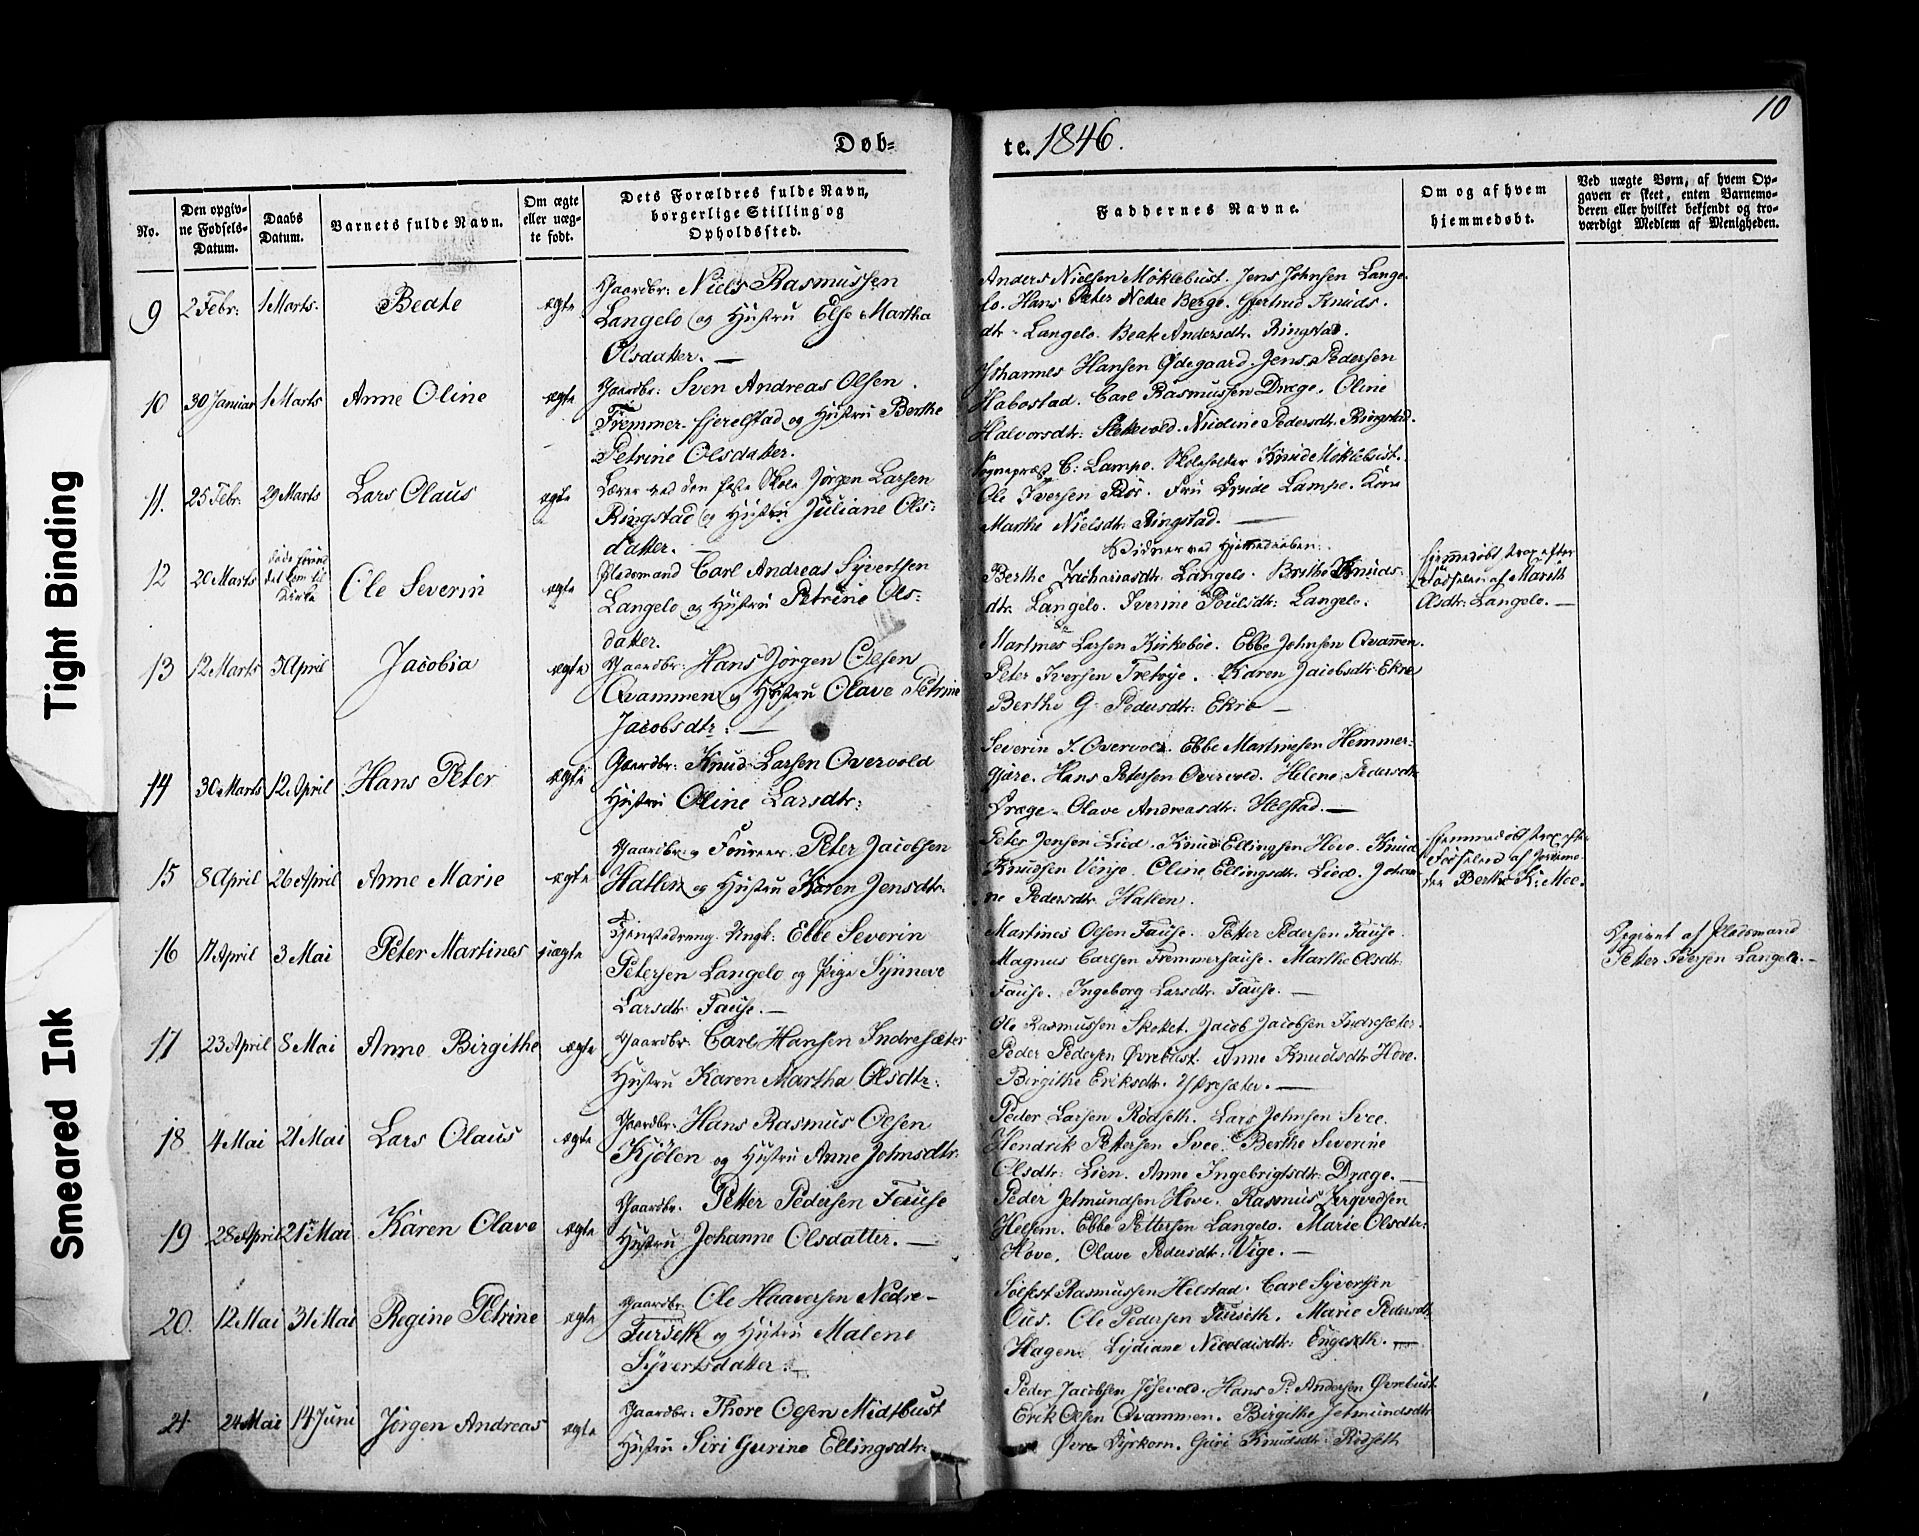 10
Døb= te. 1846.
No.
Den opgiv-
ne Fødsels-
Datum.
Daabs
Datum.
Barnets fulde Navn.
Om ægte
eller uæg-
te født.
Dets Forældres fulde Navn,
borgerlige Stilling og
Opholdssted.
Faddernes Navne.
Om og af hvem
hjemmedøbt.
Ved uægte Børn, af hvem Op-
gaven er skeet, enten Barnemo-
deren eller hvilket bekjendt og tro-
værdigt Medlem af Menigheden.
9 2 Febr: 1 Marts. Beate ægte
Gaardbr: Niels Rasmussen
Langelo og Hustru Else Martha
Olsdatter. —
Anders Nielsen Møklebust. Jens Johnsen Lange-
lo. Hans Peter Nedre Berge. Gjertrud Knuds-
dtr. Langelo. Beate Andersdtr. Ringstad.
10 30 Januar 1 Marts Anne Oline ægte
Gaardbr: Sven Andreas Olsen
Fremmer-fjerelstad og Hustru Berthe
Petrine Olsdatter.
Johannes Hansen Ødegaard. Jens Pedersen
Habostad. Carl Rasmussen Dræge. Oline
Halvorsdtr: Nudine Pedersdtr. Ringstad.
11. 25 Febr. 29 Marts Lars Olaus ægte
Lærer ved den faste Skole Jørgen Larsen
Ringstad og Hustru Juliane Ols-
datter.
Sognepræst C: Lampe. Skoleholder Knud Møklebust.
Ole Iversen Fru Lampe.
Marthe Nielsdtr: Ringstad. —
12 20 Marts
døde forend
det kom til
Kirke
Ole Severin ægte
Pladsmand Carl Andreas Syvertsen
Langelo og Hustru Petrine Ols-
datter.
Vidner ved Hjemmedaaben:
Berthe Zachariasdtr: Langelo. Berthe Knuds-
dtr. Langelo. Iverine Poulsdtr: Langelo.
Hjemmedøbt strax efter
Fødselen af Marith
Olsdtr: Langelo. —
13 12 Marts 5 April Jacobia ægte
Gaardbr: Hans Jørgen Olsen
Qvammen og Hustru Olave Petrine
Jacobsdtr: —
Martines Larsen Kirkeboe. Ebbe Johnsen Qvammen.
Peter Iversen Tretøye. Karen Jacobsdtr: Ekre
Berthe G. Pedersdtr: Ekre —
14 30 Marts 12 April Hans Peter ægte
Gaardbr: Knud Larsen Overvold
Hustru Oline Larsdtr:
Severin I. Overvold. Ebbe Martinesen Hemmer-
gjære. Hans Petersen Overvold. Helene Pedersdtr.
Dræge. Olave Andreasdtr: Helstad. —
15 8 April 26 April Anne Marie ægte
Gaardbr. og Peter Jacobsen
Hatlen og Hustru Karen Jensdtr.
Peter Jensen Lied. Knud Ellingsen Hove. Knud
Knudsen Venje. Oline Ellingsdtr. Lied. Johan-
ne Pedersdtr. Hatlen.
Hjemmedøbt strax efter
Fødselen af Jordemo-
der Berthe K: Moe.
16 17 April 3 Mai Peter Martines uægte
Tjenestedreng. Ungk: Ebbe Severin
Petersen Langelo og Pige Synneve
Larsdtr. Fause. —
Martines Olsen Fause. Petter Pedersen Fause
Magnus Carlsen Fremmerfause. Marthe Olsdtr.
Fause. Ingeborg Larsdtr. Fause. —
Opgivet af Pladsmand
Petter Iversen Langelo. —
17 23 April 8 Mai Anne Birgithe ægte
Gaardbr. Carl Hansen Indresæter
Hustru Karen Martha Olsdtr:
Ole Rasmussen Skottet. Jacob Jacobsen Indresæter.
Peder Pedersen Øvrebust. Anne Knudsdtr: Hove.
Birgithe Eriksdtr. Ytresæter. —
18 4 Mai 21 Mai Lars Olaus ægte
Gaardbr: Hans Rasmus Olsen
Kjølen og Hustru Anne Johnsdtr:
Peder Larsen Rødseth. Lars Johnsen Svee.
Hendrik Pettersen Svee. Berthe Severine
Olsdtr: Lien. Anne Ingebrigtsdtr: Dræge. —
19 28 April 21 Mai Karen Olave ægte
Gaardbr. Petter Pedersen Fause
Hustru Johanne Olsdatter. —
Peder Jetmundsen Hove. Rasmus
Helsem. Ebbe Pettersen Langelo. Marie Olsdtr:
Hove. Olave Pedersdtr: Vige. —
20. 12 Mai 31 Mai Regine Petrine ægte
Gaardbr. Ole Haaversen Nedre-
Furseth og Hustru Malene
Syvertsdatter. —
Solfest Rasmussen Helstad. Carl Syvertsen
Oues. Ole Pedersen Furseth. Marie Pedersdtr
Hagen. Lydiane Nicolaisdtr: Engeseth. —
21 24 Mai 14 Juni Jørgen Andreas ægte
Gaardbr: Thore Olsen Midtbust
Hustru Siri Gurine Ellingsdtr:
Peder Jacobsen Hans P. Andersen Øvrebust
Erik Olsen Qvammen. Birgithe Jetmundsdtr
Øvre Dyrkorn. Guri Knudsdtr: Rødseth
Tight Binding
Smeared Ink